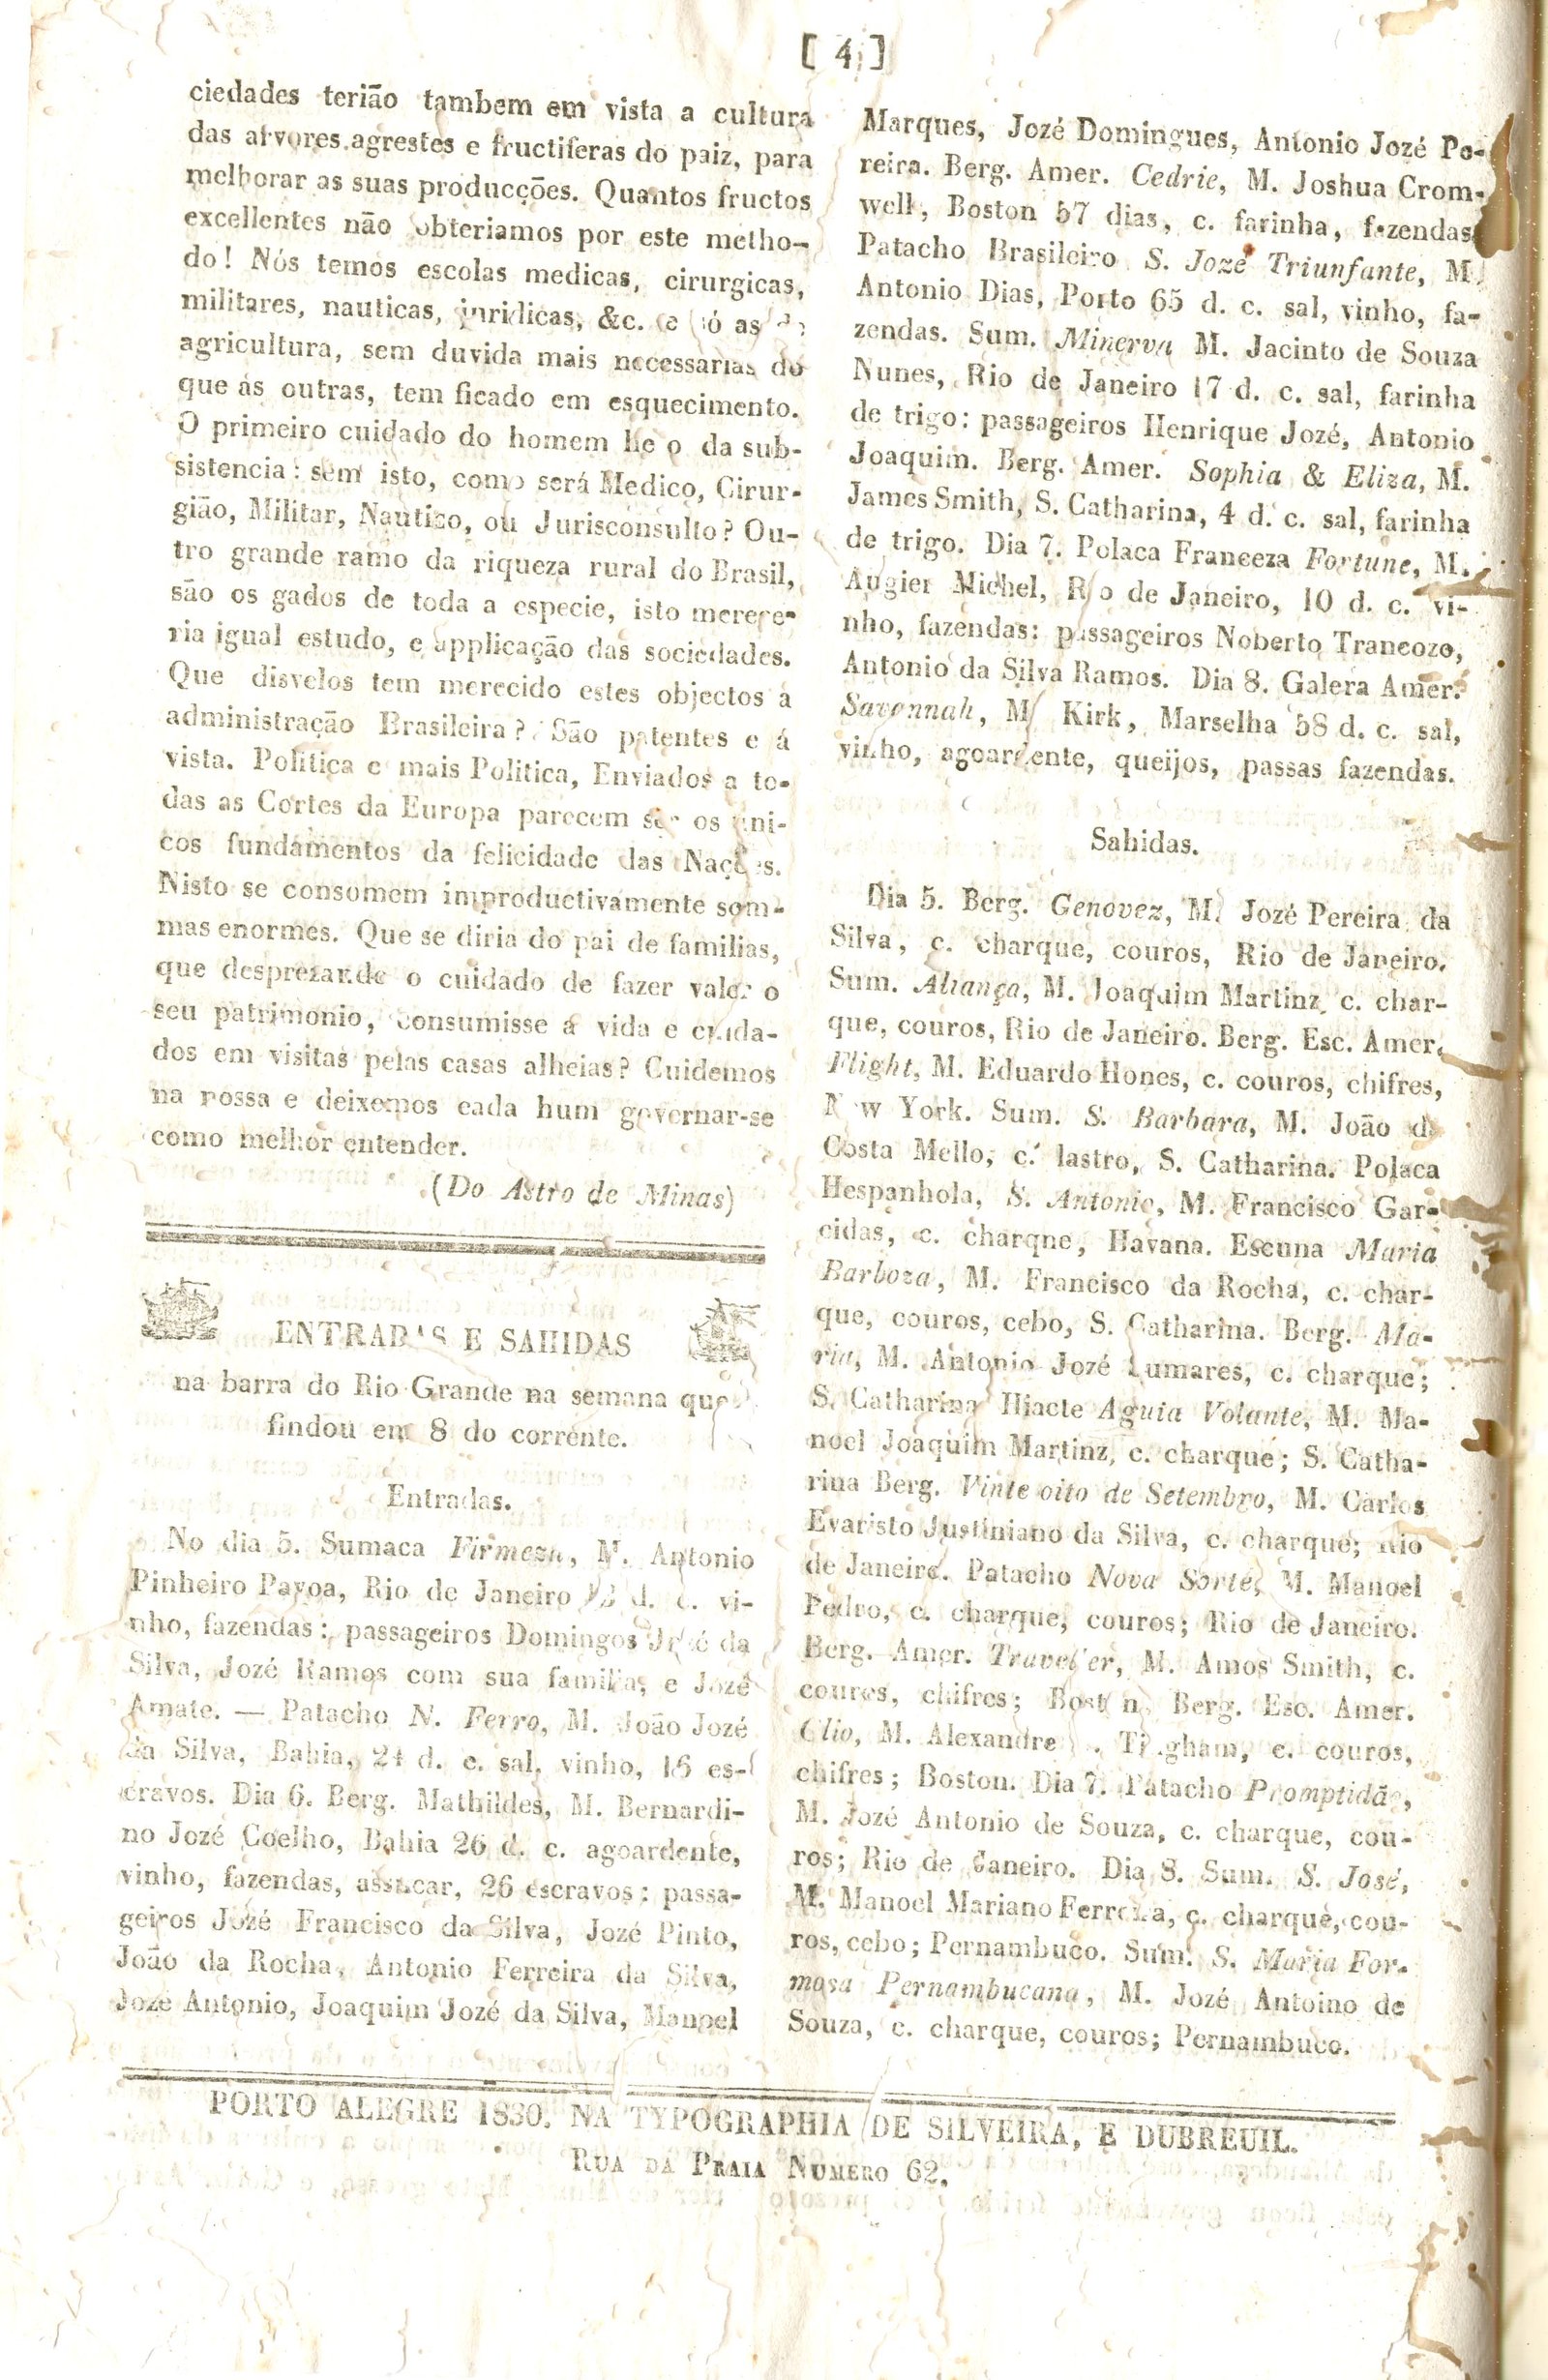 [ 4 ]
ciedades terião tambem em vista a cultura
das arvores agrestes e fructiferas do paiz, para
melhorar as suas producções. Quantos fructos
excellentes não obteriamos por este metho-
do! Nós temos escolas medicas, cirurgicas,
militares, nauticas, juridicas, &c. e só as de
agricultura, sem duvida mais necessarias do
que as outras, tem ficado em esquecimento.
O primeiro cuidado do homem he o da sub-
sistencia: sem isto, como será Medico, Cirur-
gião, Militar, Nautico, ou Jurisconsulto? Ou-
tro grande ramo da riqueza rural do Brasil,
são os gados de toda a especie, isto merece-
ria igual estudo, e applicação das sociedades.
Que disvelos tem merecido estes objectos á
administração Brasileira? São patentes e á
vista. Politica e mais Politica, Enviados a to-
das as Cortes da Europa parecem ser os uni-
cos fundamentos da felicidade das Nações.
Nisto se consomem improductivamente som-
mas enormes. Que se diria do pai de familias,
que desprezando o cuidado de fazer valer o
seu patrimonio, consumisse a vida e cuida-
dos em visitas pelas casas alheias? Cuidemos
na nossa e deixemos cada hum governar-se
como melhor entender.
(Do Astro de Minas)
ENTRADAS E SAHIDAS
na barra do Rio Grande na semana que
findou em 8 do corrente.
Entradas.
No dia 5. Sumaca Firmeza, M. Antonio
Pinheiro Pavoa, Rio de Janeiro d. c. vi-
nho, fazendas: passageiros Domingos José da
Silva, Jozé Ramos com sua familia, e Jozé
Amate. — Patacho N. Ferro, M. João Jozé
da Silva, Bahia, 24 d. c. sal, vinho, 16 es-
cravos. Dia 6. Berg. Mathildes, M. Bernardi-
no Jozé Coelho, Bahia 26 d. c. agoardente,
vinho, fazendas, assucar, 26 escravos: passa-
geiros Jozé Francisco da Silva, Jozé Pinto,
João da Rocha, Antonio Ferreira da Silva,
Jozé Antonio, Joaquim Jozé da Silva, Manoel
Marques, Jozé Domingues, Antonio Jozé Pe-
reira. Berg. Amer. Cedrie, M. Joshua Crom-
well, Boston 57 dias, c. farinha, fazendas
Patacho Brasileiro S. Jozé Triunfante, M.
Antonio Dias, Porto 65 d. c. sal, vinho, fa-
zendas. Sum. Minerva M. Jacinto de Souza
Nunes, Rio de Janeiro 17 d. c. sal, farinha
de trigo: passageiros Henrique Jozé, Antonio
Joaquim. Berg. Amer. Sophia & Eliza, M.
James Smith, S. Catharina, 4 d. c. sal, farinha
de trigo. Dia 7. Polaca Franceza Fortune, M.
Augier Michel, Rio de Janeiro, 10 d. c. vi-
nho, fazendas: passageiros Noberto Trancozo,
Antonio da Silva Ramos. Dia 8. Galera Amer.
Savannah, M. Kirk, Marselha 58 d. c. sal,
vinho, agoardente, queijos, passas fazendas.
Sahidas.
Dia 5. Berg. Genovez, M. Jozé Pereira da
Silva, c. charque, couros, Rio de Janeiro.
Sum. Aliança, M. Joaquim Martinz, c. char-
que, couros, Rio de Janeiro. Berg. Esc. Amer.
Flight, M. Eduardo Hones, c. couros, chifres,
New York. Sum. S. Barbara, M. João d
Costa Mello, c. lastro, S. Catharina. Polaca
Hespanhola, S. Antonio, M. Francisco Gar-
cidas, c. charqne, Havana. Escuna Maria
Barboza, M. Francisco da Rocha, c. char-
que, couros, cebo, S. Catharina. Berg. Ma-
ria, M. Antonio Jozé Lumares, c. charque;
S. Catharina Hiacte Aguia Volante, M. Ma-
noel Joaquim Martinz, c. charque; S. Catha-
rina Berg. Vinte oito de Setembro, M. Carlos
Evaristo Justiniano da Silva, c. charque; Rio
de Janeiro. Patacho Nova Sorte, M. Manoel
Pedro, c. charque, couros; Rio de Janeiro.
Berg. Amer. Traveller, M. Amos Smith, c.
couros, chifres; Boston, Berg. Esc. Amer.
Clio, M. Alexandre c. couros,
chifres; Boston. Dia 7. Patacho Promptidão,
M. Jozé Antonio de Souza, c. charque, cou-
ros; Rio de Janeiro. Dia 8. Sum. S. José,
M. Manoel Mariano Ferreira, c. charque, cou-
ros, cebo; Pernambuco. Sum. S. Maria For-
mosa Pernambucana, M. Jozé Antoino de
Souza, c. charque, couros; Pernambuco.
PORTO ALEGRE 1830. NA TYPOGRAPHIA DE SILVEIRA, E DUBREUIL.
RUA DA PRAIA NUMERO 62.